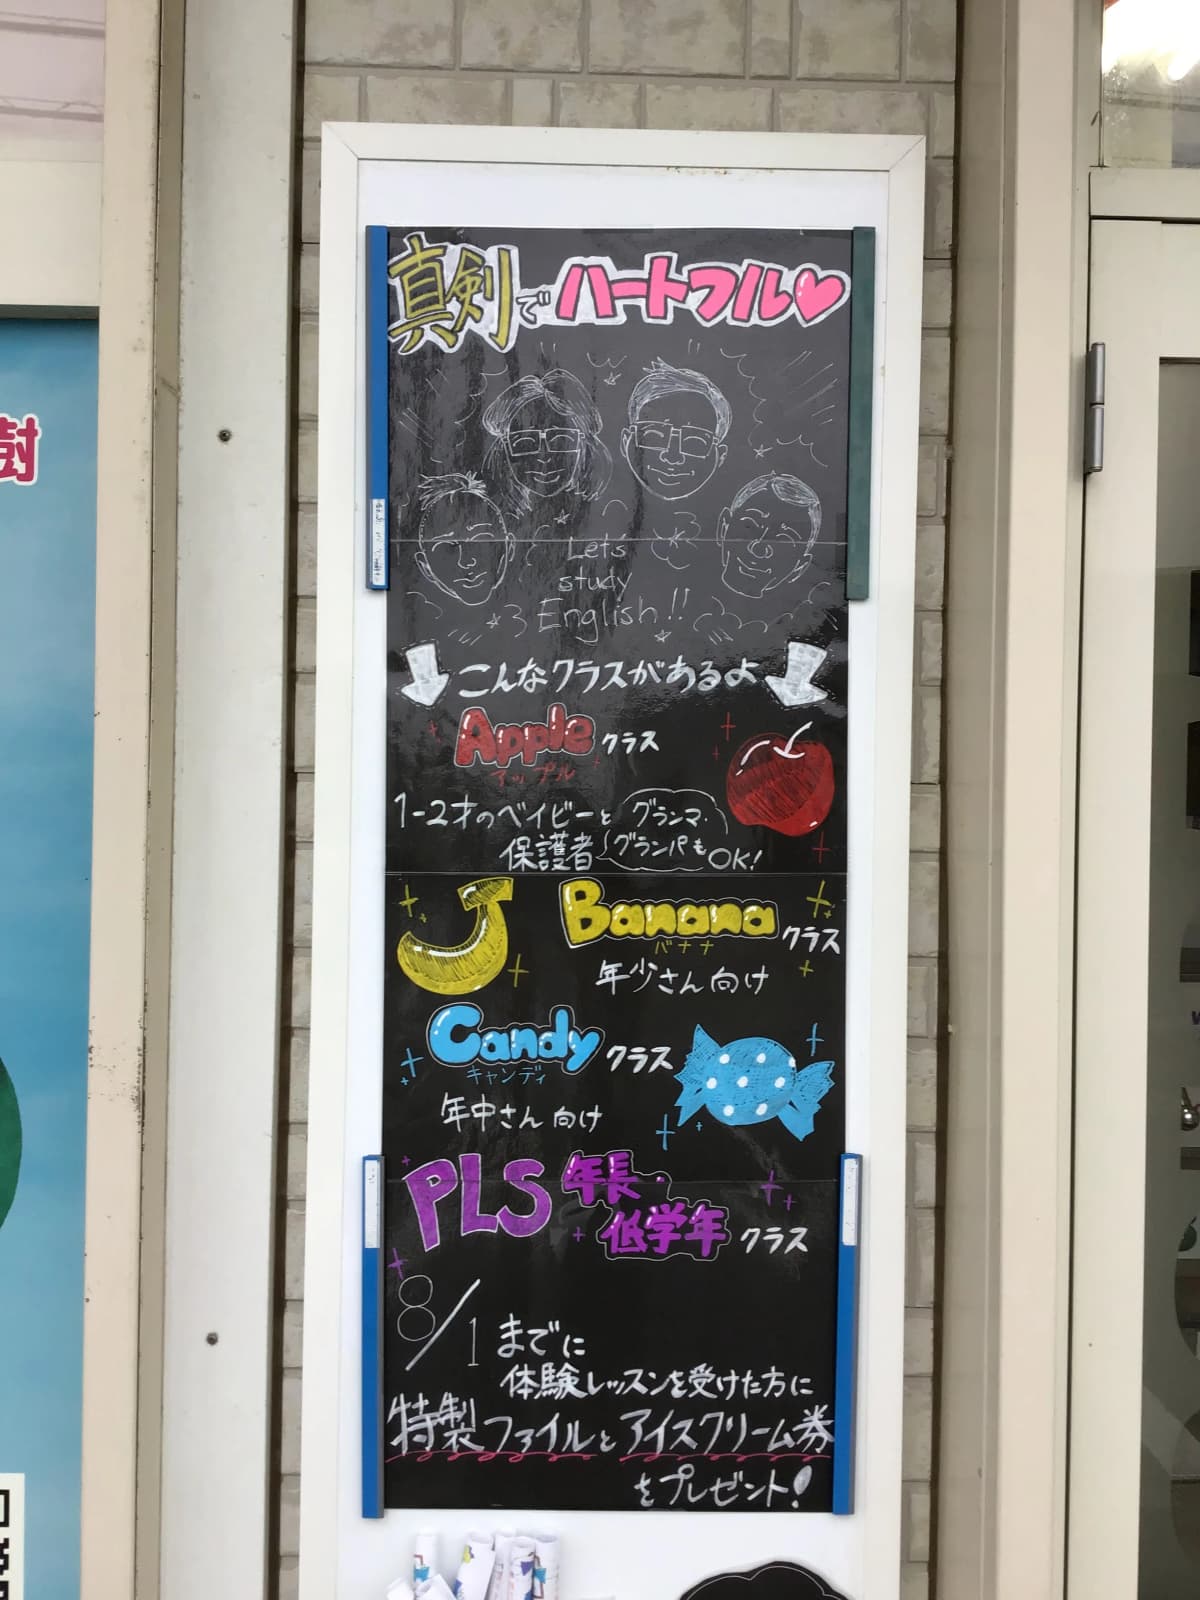 真剣でハートフル♡
Let's
study
English!!
こんなクラスがあるよ
Appleクラス
アップル
1-2才のベイビーと
保護者
グランマ・
グランパも
OK!
Bananaクラス
バナナ
年少さん向け
Candyクラス
キャンディ
年中さん向け
PLS年長・
低学年クラス
8/1までに
体験レッスンを受けた方に
特製ファイルとアイスクリーム券
をプレゼント!
樹